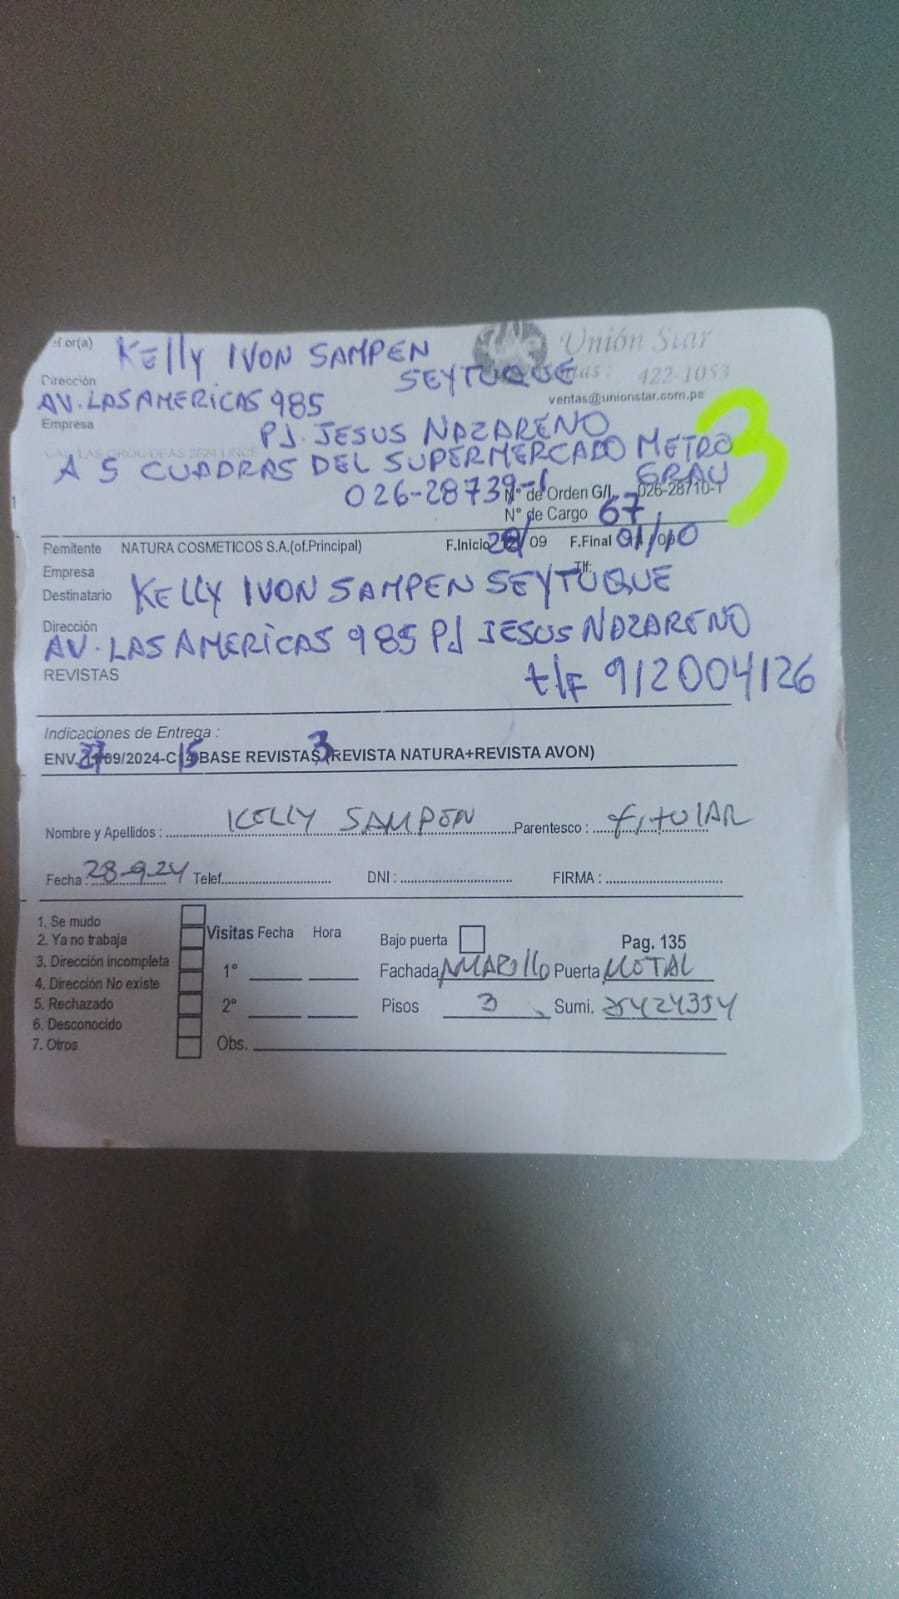 or(a) KELLY IVON SAMPEN
SEYTUQUE
Unión Star
422-1053
ventas@unionstar.com.pe
Dirección
AV. LAS AMERICAS 985
Empresa
PJ. JESUS NAZARENO
A 5 CUADRAS DEL SUPERMERCADO METRO
GRAU
3
026-28739-1 N° de Orden G/L 026-28710-1
N° de Cargo 67
Remitente NATURA COSMETICOS S.A.(of.Principal) F.Inicio 28/09 F.Final 01/10
Empresa Tlf:
Destinatario KELLY IVON SAMPEN SEYTUQUE
Dirección
AV. LAS AMERICAS 985 PJ JESUS NAZARENO
REVISTAS t/F 912004126
Indicaciones de Entrega :
ENV. 27/09/2024-C 15 BASE REVISTAS 3 (REVISTA NATURA+REVISTA AVON)
Nombre y Apellidos : KELLY SAMPEN Parentesco : titular
Fecha : 28-9-24 Telef. DNI : FIRMA :
1. Se mudo
2. Ya no trabaja
3. Dirección incompleta
4. Dirección No existe
5. Rechazado
6. Desconocido
7. Otros
Visitas Fecha Hora
1°
2°
Obs.
Bajo puerta Pag. 135
Fachada AMARILLO Puerta METAL
Pisos 3 Sumi. 25424354